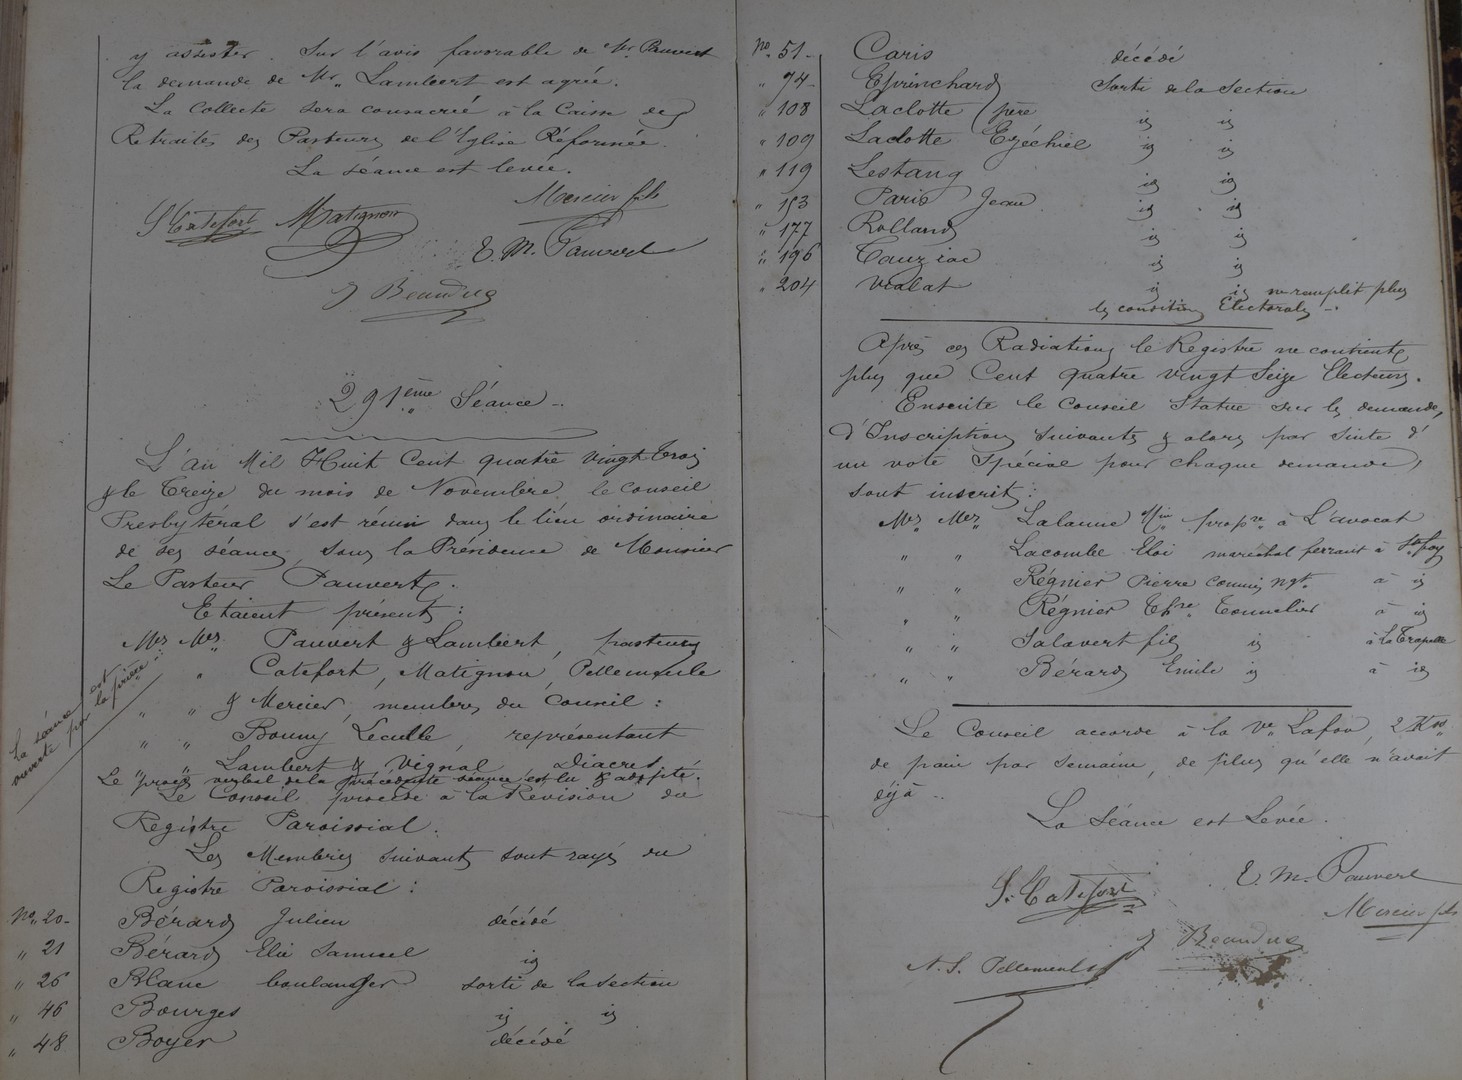 y assister. Sur l'avis favorable de Mr. Pauvert
la demande de Mr. Lambert est agréé.
La collecte sera consacrée à la Caisse des
Retraites des Pasteurs de l'Eglise Réformée.
La séance est levée.
Mercier fils
S. Catefort Matignon
E. M. Pauvert
J Beauduc
291ème Séance
L'an Mil Huit Cent quatre vingt trois
& le treize du mois de Novembre, le Conseil
Presbytéral s'est réuni dans le lieu ordinaire
de ses séances, sous la Présidence de Monsieur
Le Pasteur Pauvert.
Etaient présents :
La séance est
ouverte par la prière :
Mrs Mrs Pauvert & Lambert, pasteurs
" Catefort, Matignon, Pellemeule
" " & Mercier, membres du Conseil :
" " Bouny Leculle, représentant
" " Lambert & Vignal Diacres
Le procès verbal de la précédente séance est lu & adopté.
Le Conseil procède à la Révision du
Registre Paroissial.
Les Membres suivants sont rayés du
Registre Paroissial :
No. 20 Bérard Julien décédé
" 21 Bérard Elie Samuel id
" 26 Blanc boulanger sorti de la section
" 46 Bourges id id
" 48 Boyer décédé
No. 51 Caris décédé
" 74 Eprinchard Sorti de la Section
" 108 Laclotte père id id
" 109 Laclotte Ezéchiel id id
" 119 Lestang id id
" 153 Paris Jean id id
" 177 Rolland id id
" 196 Tauziac id id
" 204 Vialat id id ne remplit plus
les conditions Electorales
Après ces Radiations le Registre ne contient
plus que Cent quatre vingt Seize Electeurs.
Ensuite le Conseil Statue sur les demandes
d'Inscriptions suivantes & alors par suite d'
un vote spécial pour chaque demande,
sont inscrits :
Mrs Mrs Lalanne propre à L'avocat
" " Lacombe Eloi maréchal ferrant à Ste foy
" " Régnier Pierre commis ngt. à id
" " Régnier Tonnelier à id
" " Salavert fils id à La Trapelle
" " Bérard Emile id à id
Le Conseil accorde à la Ve Lafon, 2 Kos
de pain par semaine, de plus qu'elle n'avait
déjà.
La Séance est Levée.
S. Catefort E. M. Pauvert
Mercier fils
J Beauduc
A. S. Pellemeule